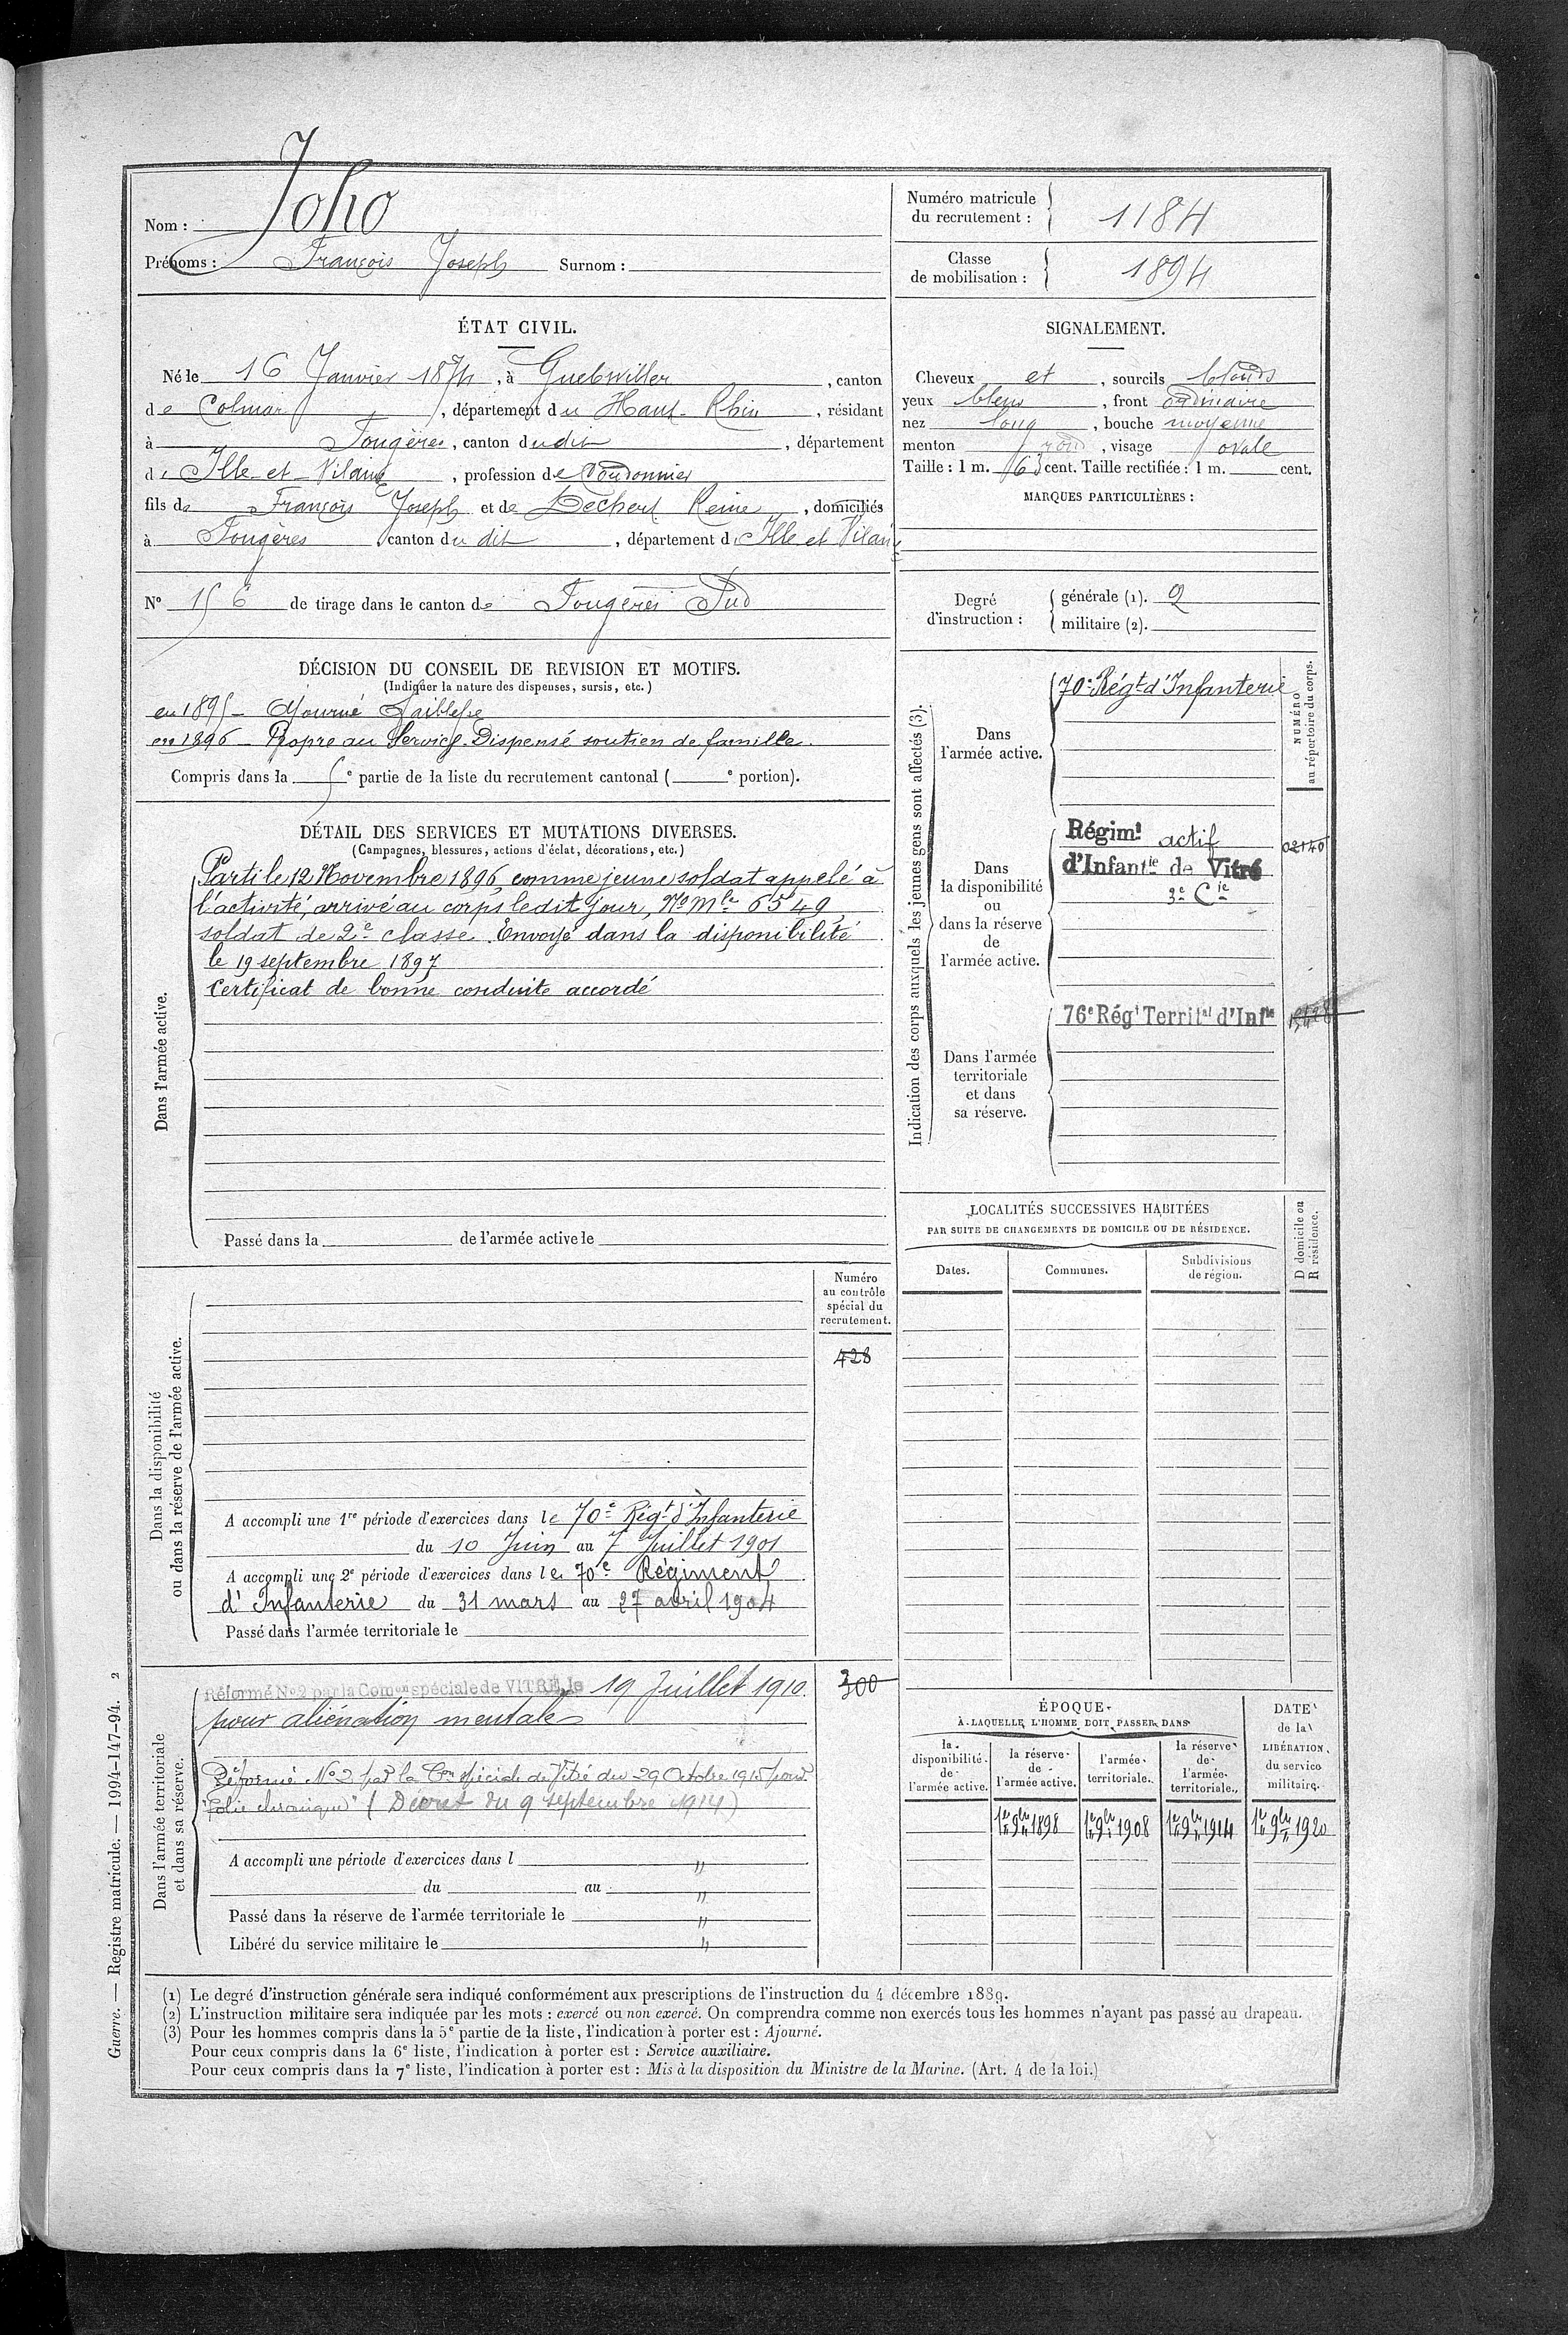 Nom : Joho
Prénoms : François Joseph Surnom :
Numéro matricule du recrutement : 1184
Classe de mobilisation : 1894
ÉTAT CIVIL.
Né le 16 Janvier 1874, à Guebwiller, canton
de Colmar, département du Haut-Rhin, résidant
à Fougères, canton dudit, département
d'Ille et Vilaine, profession de Cordonnier
fils de François Joseph et de Bechert Reine, domiciliés
à Fougères canton du dit, département d'Ille et Vilaine
N° 156 de tirage dans le canton de Fougères Sud
SIGNALEMENT.
Cheveux et, sourcils blonds
yeux bleus, front ordinaire
nez long, bouche moyenne
menton rond, visage ovale
Taille : 1 m. cent. Taille rectifiée : 1 m. cent.
MARQUES PARTICULIÈRES :
Degré d'instruction :
générale (1). 2
militaire (2).
DÉCISION DU CONSEIL DE REVISION ET MOTIFS.
(Indiquer la nature des dispenses, sursis, etc.)
en 1895 – Ajourné Faiblesse
en 1896 – Propre au Service. Dispensé soutien de famille.
Compris dans la 5e partie de la liste du recrutement cantonal ( e portion).
DÉTAIL DES SERVICES ET MUTATIONS DIVERSES.
(Campagnes, blessures, actions d'éclat, décorations, etc.)
Dans l'armée active.
Parti le 12 Novembre 1896, comme jeune soldat appelé à
l'activité, arrivé au corps ledit jour, No Mle 6549
soldat de 2e classe. Envoyé dans la disponibilité
le 19 septembre 1897
Certificat de bonne conduite accordé
Passé dans la de l'armée active le
Indication des corps auxquels les jeunes gens sont affectés (3).
NUMÉRO
au répertoire du corps.
Dans
l'armée active.
70e Régt d'Infanterie
Dans
la disponibilité
ou
dans la réserve
de
l'armée active.
Régimt actif 02140
d'Infantie de Vitré
3e Cie
Dans l'armée
territoriale
et dans
sa réserve.
76e Régt Territal d'Infie
LOCALITÉS SUCCESSIVES HABITÉES
PAR SUITE DE CHANGEMENTS DE DOMICILE OU DE RÉSIDENCE.
Dates.
Communes.
Subdivisions
de région.
D domicile ou
R résidence.
Dans la disponibilité
ou dans la réserve de l'armée active.
Numéro
au contrôle
spécial du
recrutement.
428
A accompli une 1re période d'exercices dans le 70e Régt d'Infanterie
du 10 Juin au 7 Juillet 1901
A accompli une 2e période d'exercices dans le 70e Régiment
d'Infanterie du 31 mars au 27 avril 1904
Passé dans l'armée territoriale le
Dans l'armée territoriale
et dans sa réserve.
Réformé No 2 par la Comon spéciale de VITRÉ, le 19 Juillet 1910.
300
pour aliénation mentale
Réformé No 2 par la Con spéciale de Vitré du 29 Octobre 1915 pour
"folie chronique" (Décret du 9 septembre 1914)
A accompli une période d'exercices dans l "
du au "
Passé dans la réserve de l'armée territoriale le "
Libéré du service militaire le "
ÉPOQUE
À LAQUELLE L'HOMME DOIT PASSER DANS
la disponibilité de l'armée active.
la réserve de l'armée active.
l'armée territoriale.
la réserve de l'armée territoriale.
DATE de la LIBÉRATION du service militaire.
1er 9bre 1898
1er 9bre 1908
1er 9bre 1914
1er 9bre 1920
(1) Le degré d'instruction générale sera indiqué conformément aux prescriptions de l'instruction du 4 décembre 1889.
(2) L'instruction militaire sera indiquée par les mots : exercé ou non exercé. On comprendra comme non exercés tous les hommes n'ayant pas passé au drapeau.
(3) Pour les hommes compris dans la 5e partie de la liste, l'indication à porter est : Ajourné.
Pour ceux compris dans la 6e liste, l'indication à porter est : Service auxiliaire.
Pour ceux compris dans la 7e liste, l'indication à porter est : Mis à la disposition du Ministre de la Marine. (Art. 4 de la loi.)
Guerre. — Registre matricule. — 1994-147-94. 2